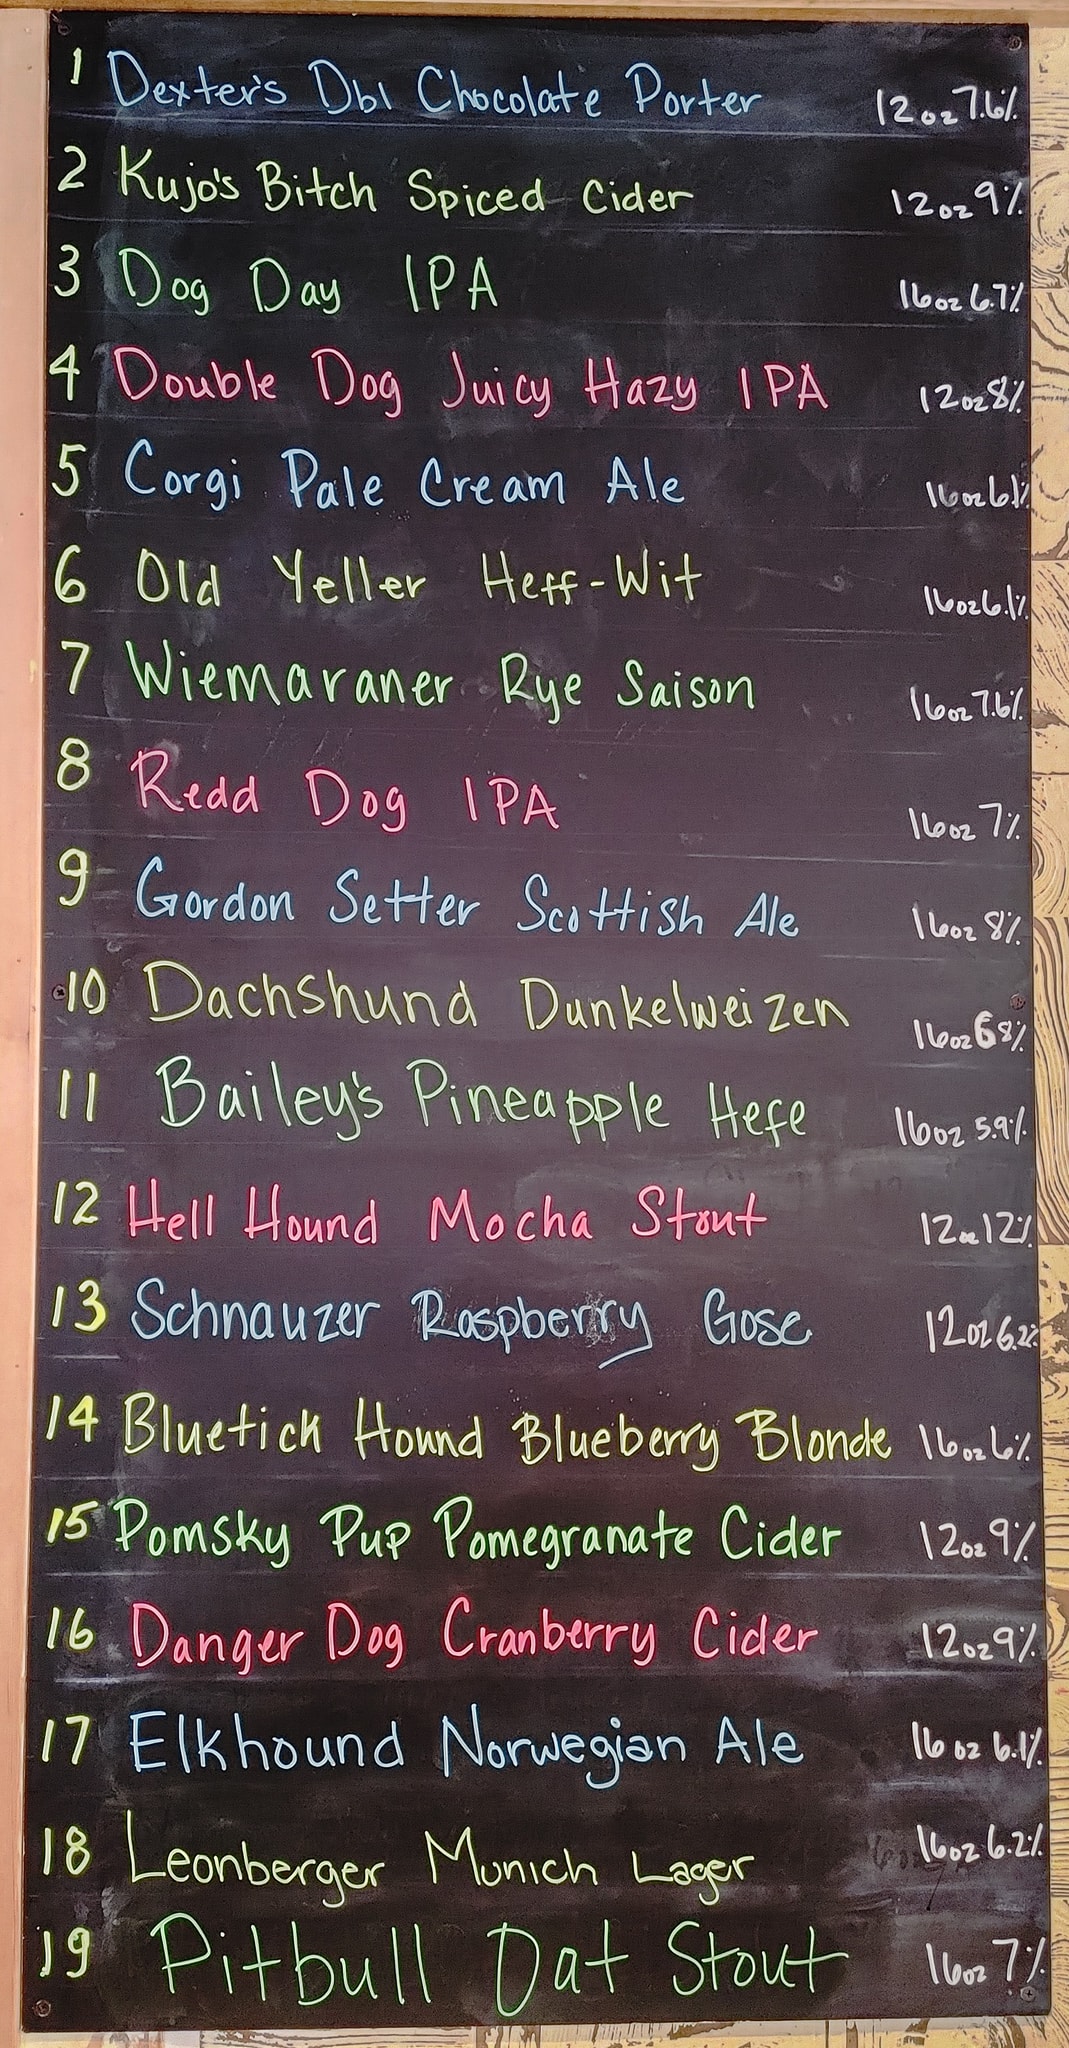 1 Dexter's Dbl Chocolate Porter 12oz 7.6%
2 Kujo's Bitch Spiced Cider 12oz 9%
3 Dog Day IPA 16oz 6.7%
4 Double Dog Juicy Hazy IPA 12oz 8%
5 Corgi Pale Cream Ale 16oz 6.1%
6 Old Yeller Heff-Wit 16oz 6.1%
7 Wiemaraner Rye Saison 16oz 7.6%
8 Redd Dog IPA 16oz 7%
9 Gordon Setter Scottish Ale 16oz 8%
10 Dachshund Dunkelweizen 16oz 6.8%
11 Bailey's Pineapple Hefe 16oz 5.9%
12 Hell Hound Mocha Stout 12oz 12%
13 Schnauzer Raspberry Gose 12oz 6.2%
14 Bluetick Hound Blueberry Blonde 16oz 6%
15 Pomsky Pup Pomegranate Cider 12oz 9%
16 Danger Dog Cranberry Cider 12oz 9%
17 Elkhound Norwegian Ale 16oz 6.1%
18 Leonberger Munich Lager 16oz 6.2%
19 Pitbull Oat Stout 16oz 7%